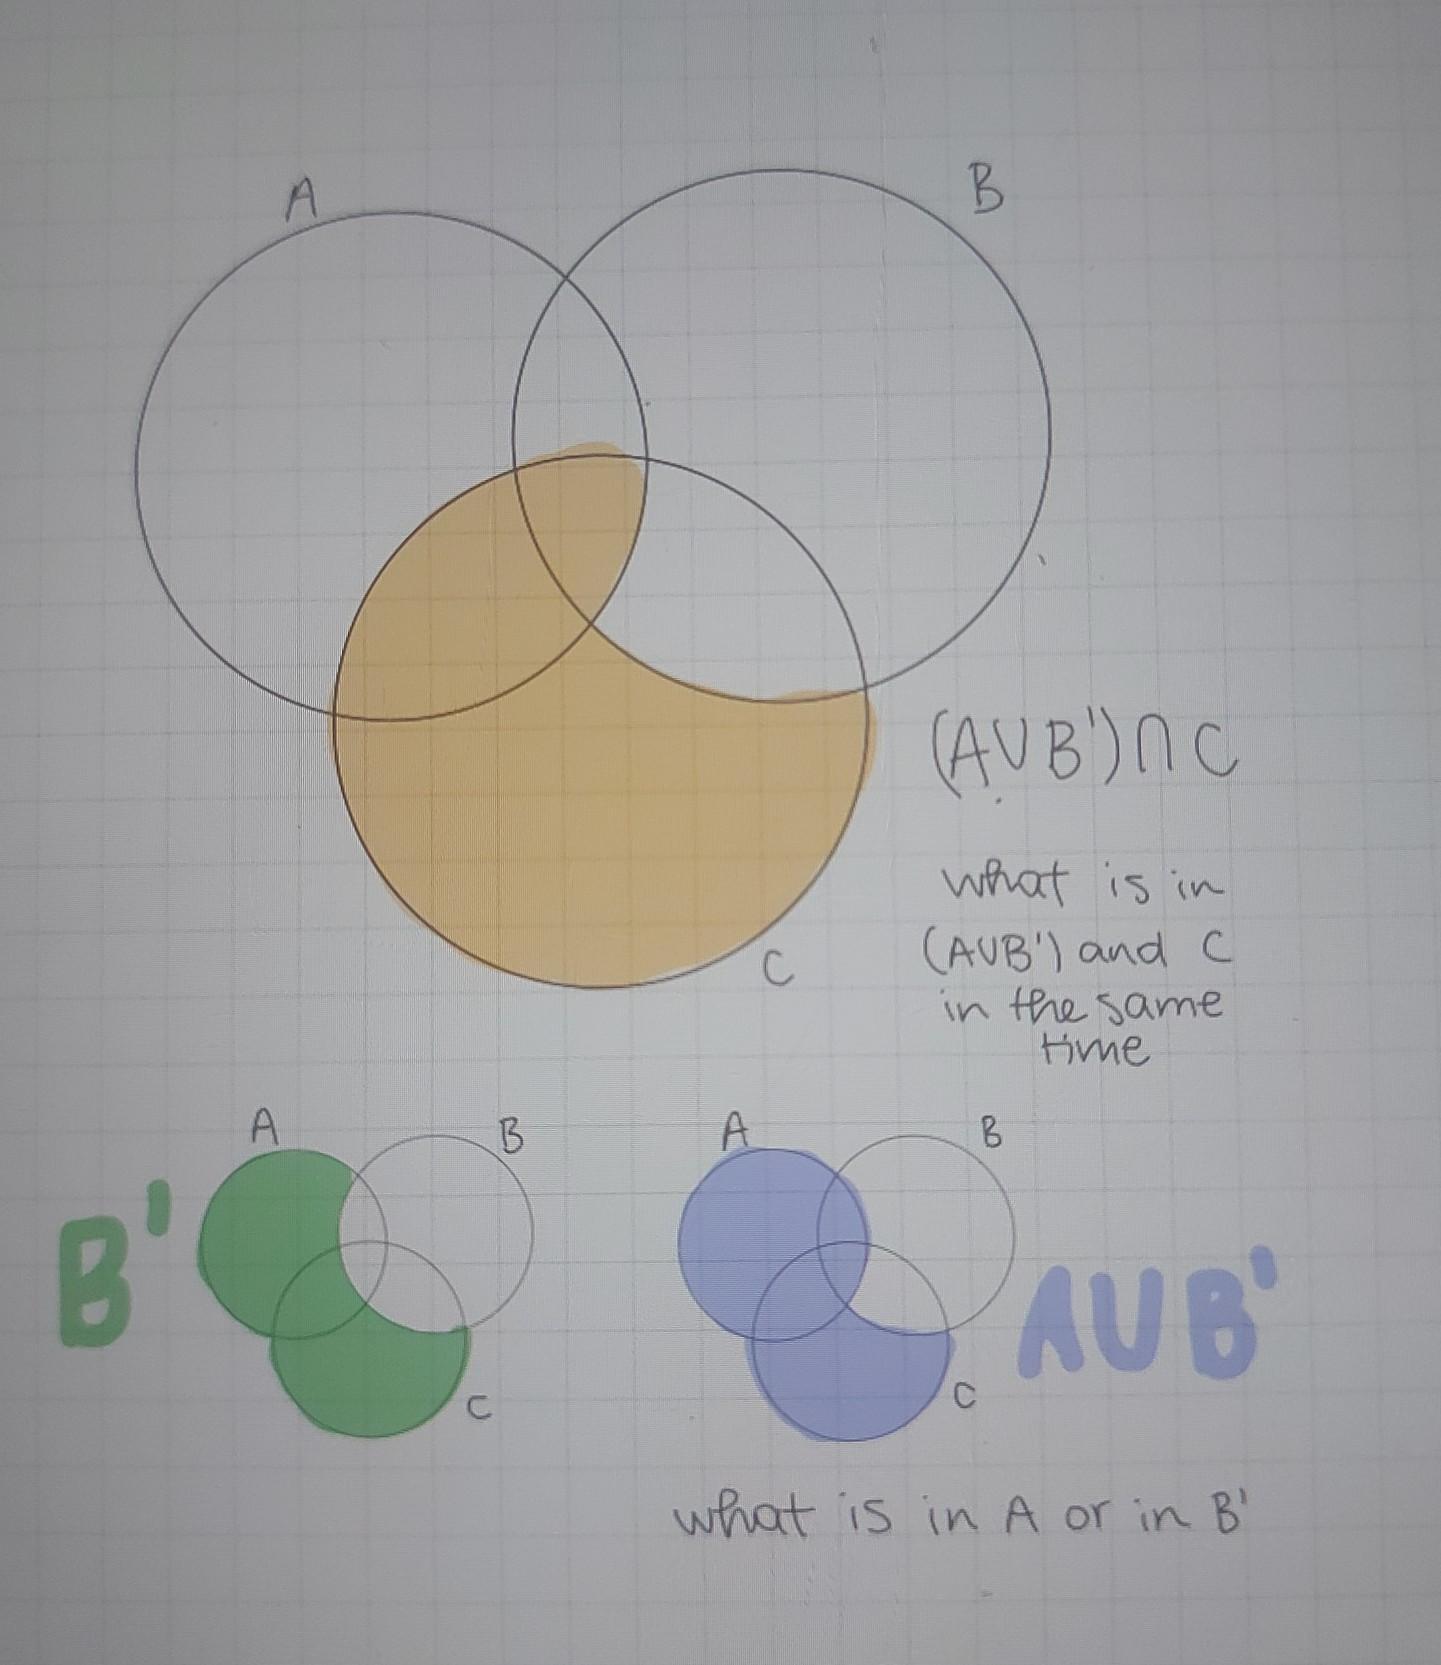 A
B
(AUB')∩C
what is in
(AUB') and C
in the same
time
C
A
B
A
B
B'
AUB'
C
C
what is in A or in B'